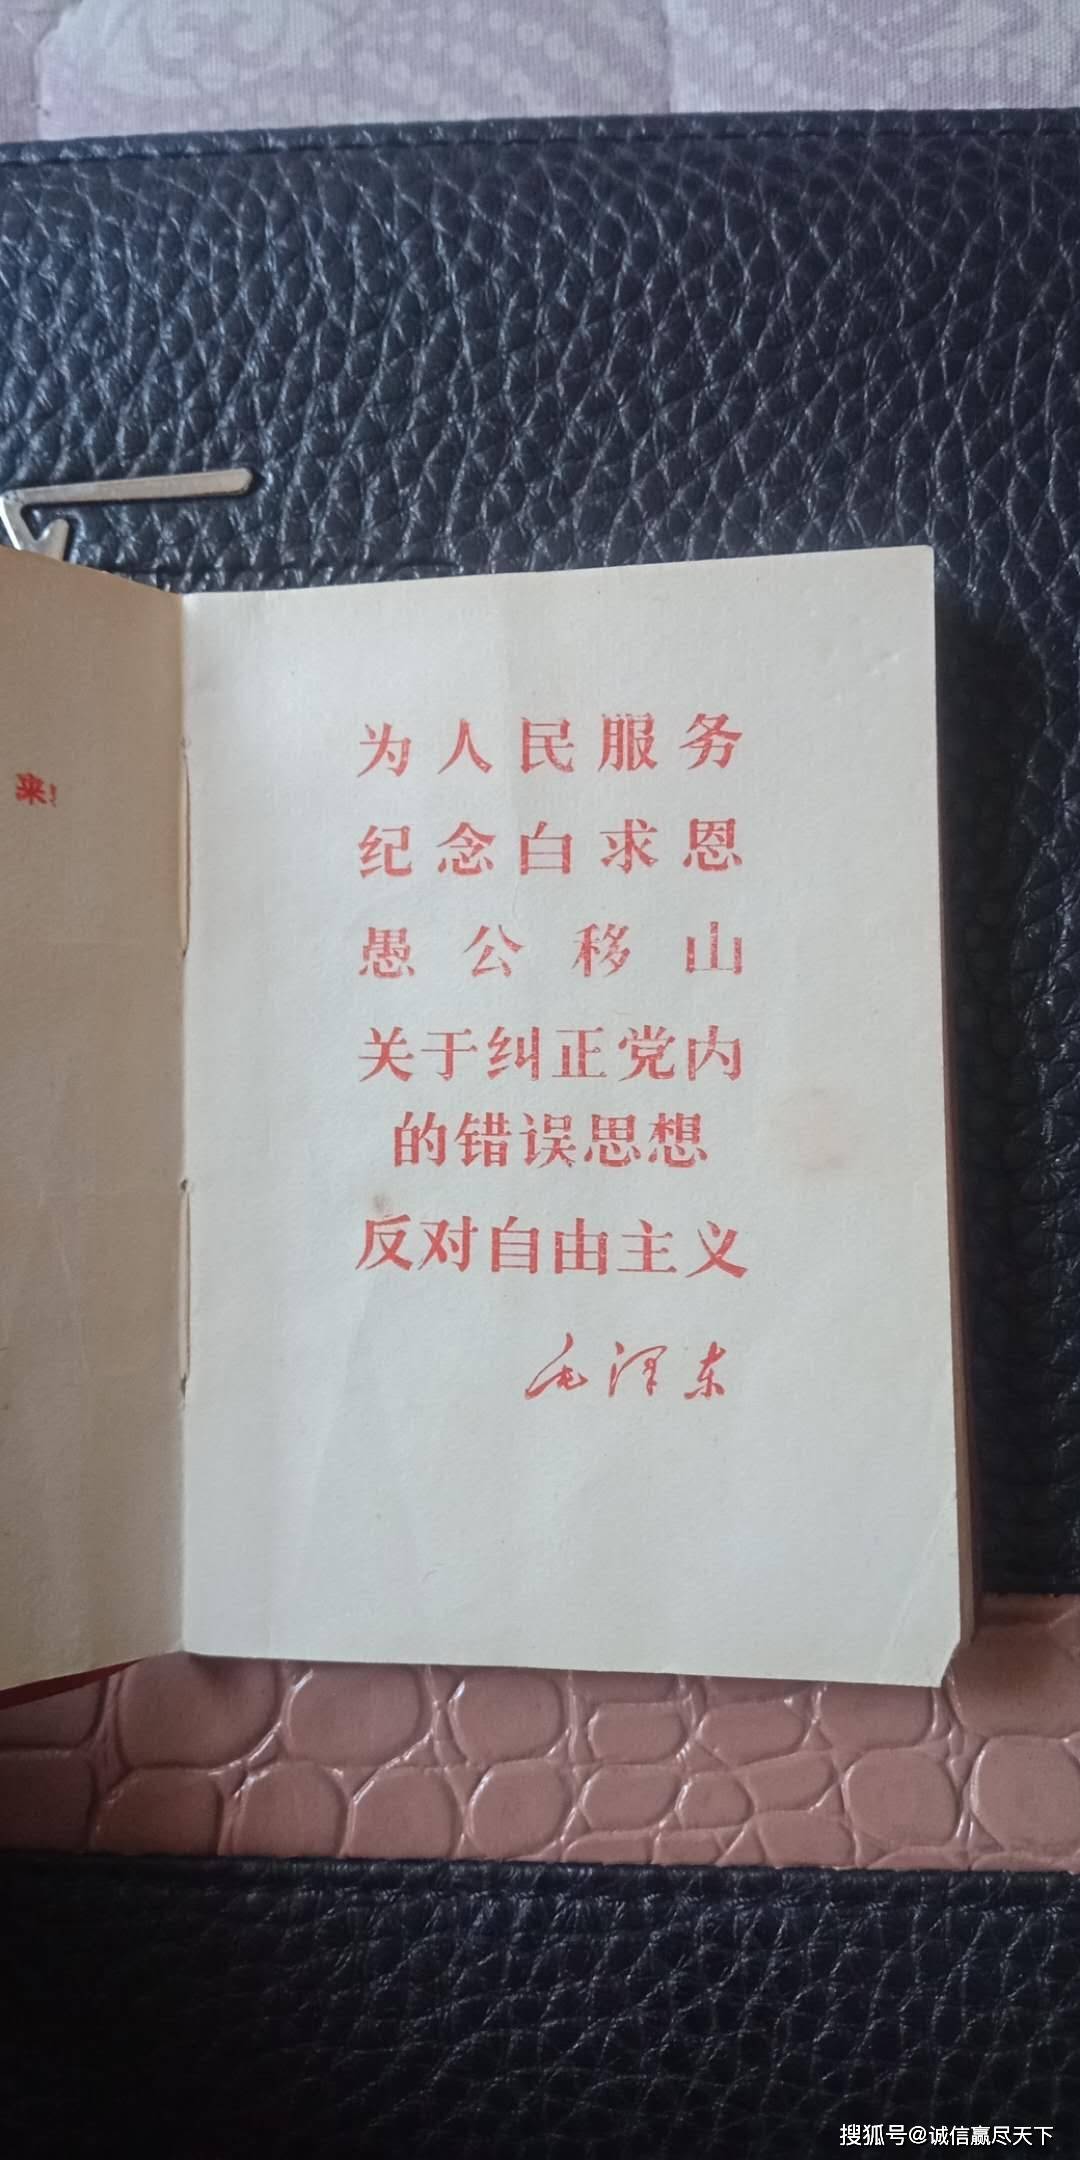 来!
为人民服务
纪念白求恩
愚公移山
关于纠正党内
的错误思想
反对自由主义
毛泽东
搜狐号@诚信赢尽天下